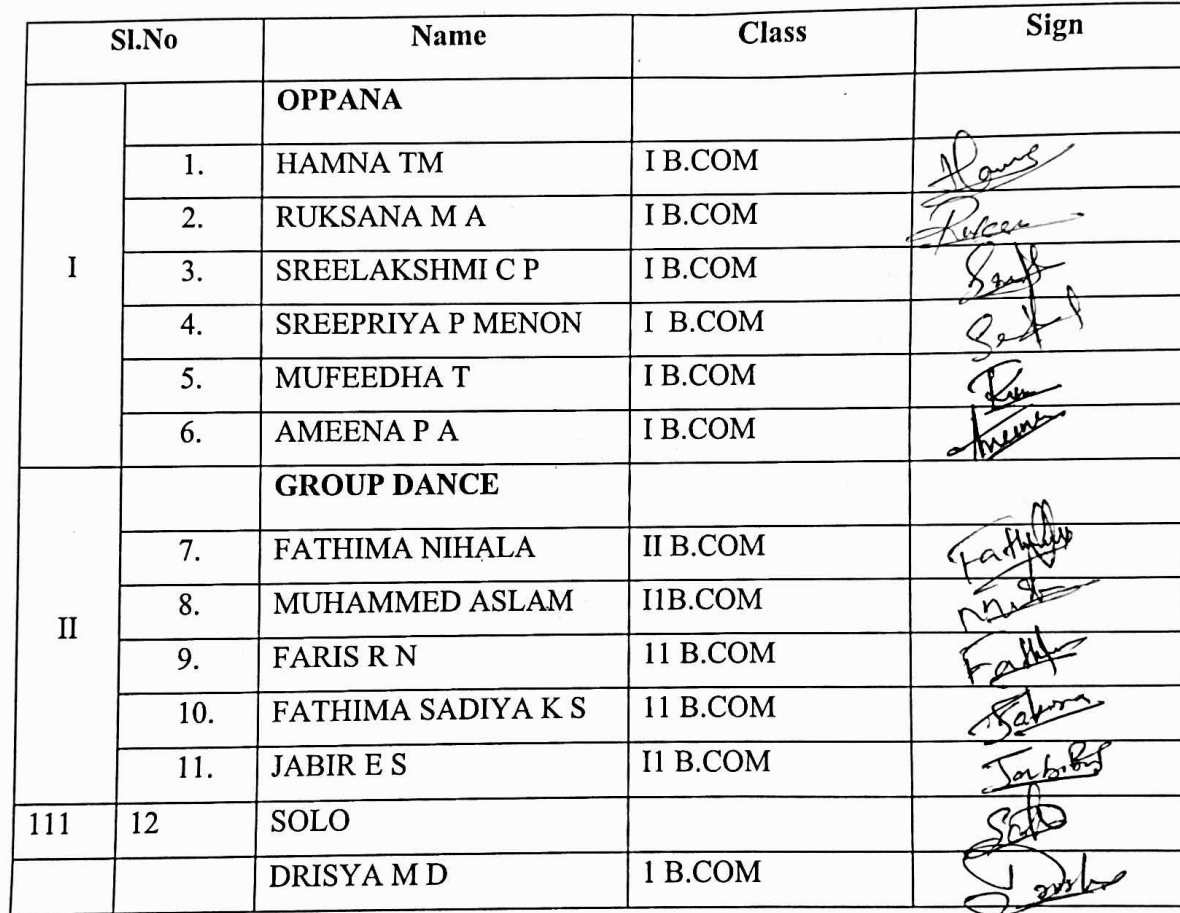 Sl.No Name Class Sign
OPPANA
1. HAMNA TM I B.COM
2. RUKSANA M A I B.COM
I 3. SREELAKSHMI C P I B.COM
4. SREEPRIYA P MENON I B.COM
5. MUFEEDHA T I B.COM
6. AMEENA P A I B.COM Ameena
GROUP DANCE
7. FATHIMA NIHALA II B.COM
8. MUHAMMED ASLAM I1B.COM
II 9. FARIS R N 11 B.COM
10. FATHIMA SADIYA K S 11 B.COM
11. JABIR E S I1 B.COM
111 12 SOLO
DRISYA M D 1 B.COM